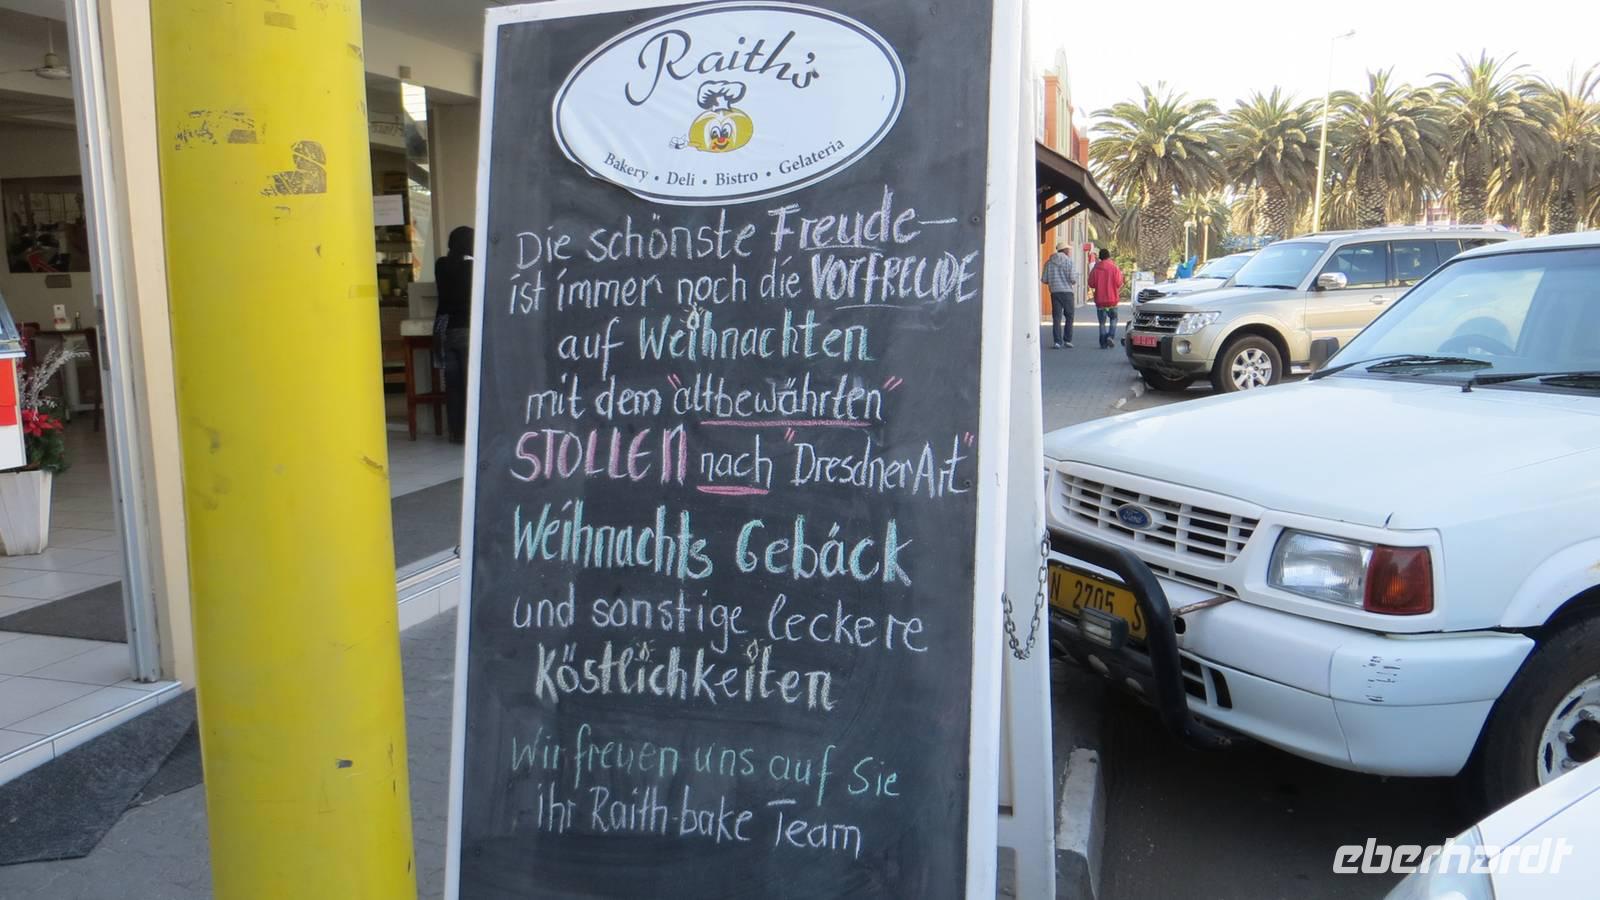 Raith's
Bakery • Deli • Bistro • Gelateria
Die schönste Freude-
ist immer noch die VORFREUDE
auf Weihnachten
mit dem "altbewährten"
STOLLEN nach "Dresdner Art"
Weihnachts Gebäck
und sonstige leckere
Köstlichkeiten
Wir freuen uns auf Sie
ihr Raith-bake Team
Ford
N 2705 S
eberhardt